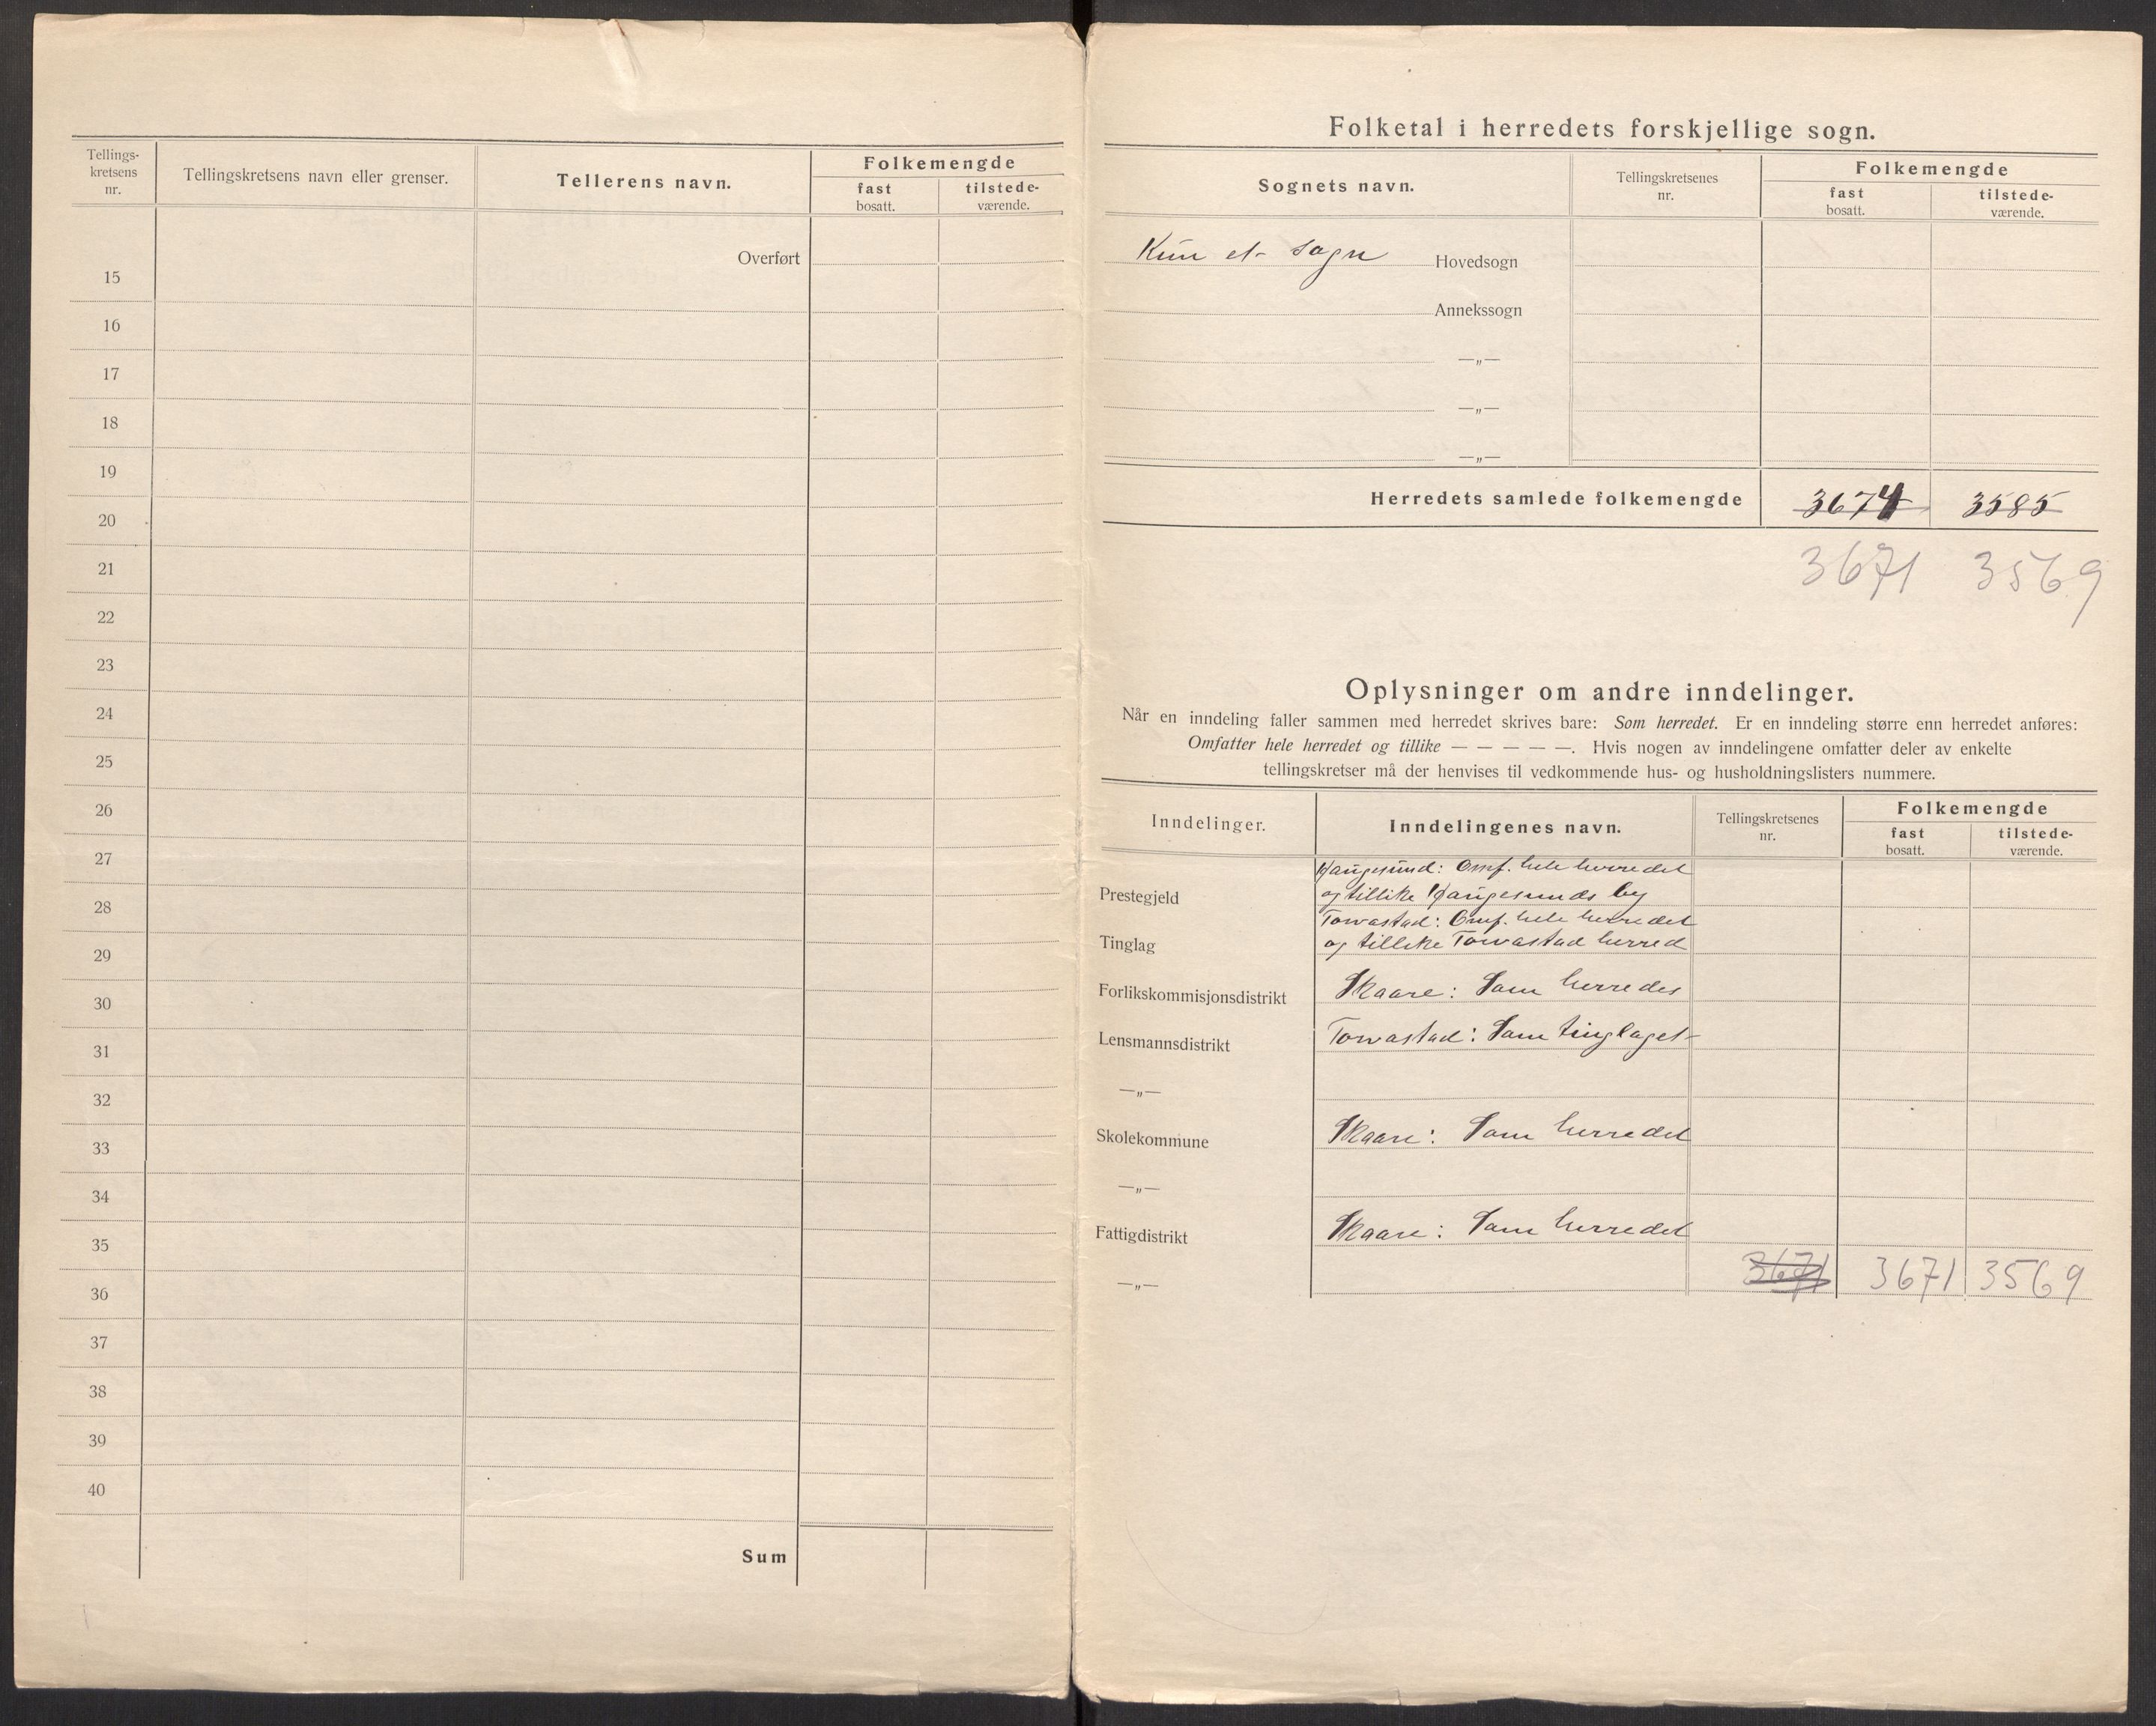 Tellings-
kretsens
nr.
Tellingskretsens navn eller grenser.
Tellerens navn.
Folkemengde
fast
bosatt.
tilstede-
værende.
Overført
15
16
17
18
19
20
21
22
23
24
25
26
27
28
29
30
31
32
33
34
35
36
37
38
39
40
Sum
Folketal i herredets forskjellige sogn.
Sognets navn.
Tellingskretsenes
nr.
Folkemengde
fast
bosatt.
tilstede-
værende.
Kun et sogn Hovedsogn
Annekssogn
—„—
—„—
—„—
Herredets samlede folkemengde 3674 3585
3671 3569
Oplysninger om andre inndelinger.
Når en inndeling faller sammen med herredet skrives bare: Som herredet. Er en inndeling større enn herredet anføres:
Omfatter hele herredet og tillike — — — — —. Hvis nogen av inndelingene omfatter deler av enkelte
tellingskretser må der henvises til vedkommende hus- og husholdningslisters nummere.
Inndelinger.
Inndelingenes navn.
Tellingskretsenes
nr.
Folkemengde
fast
bosatt.
tilstede-
værende.
Haugesund: Omf. hele herredet
Prestegjeld og tillike Haugesunds by
Torvastad: Omf. hele herredet
Tinglag og tillike Torvastad herred
Forlikskommisjonsdistrikt Skaare: Som herredet
Lensmannsdistrikt Torvastad: Som tinglaget
—„—
Skolekommune Skaare: Som herredet
—„—
Fattigdistrikt Skaare: Som herredet
—„— 3671 3671 3569